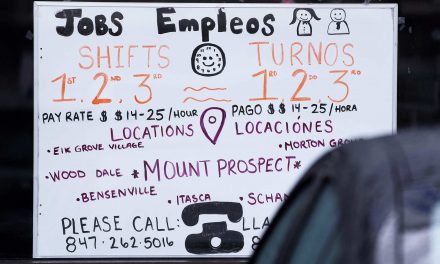 JOBS EMPLEOS
SHIFTS TURNOS
1ST. 2ND 3RD 1RO. 2DO 3RO
PAY RATE $ $14-25/HOUR PAGO $ $14-25/HORA
LOCATIONS LOCACIÓNES
• ELK GROVE VILLAGE • MORTON GROVE
• WOOD DALE *MOUNT PROSPECT*
• BENSENVILLE • ITASCA
PLEASE CALL:
847.262.5016